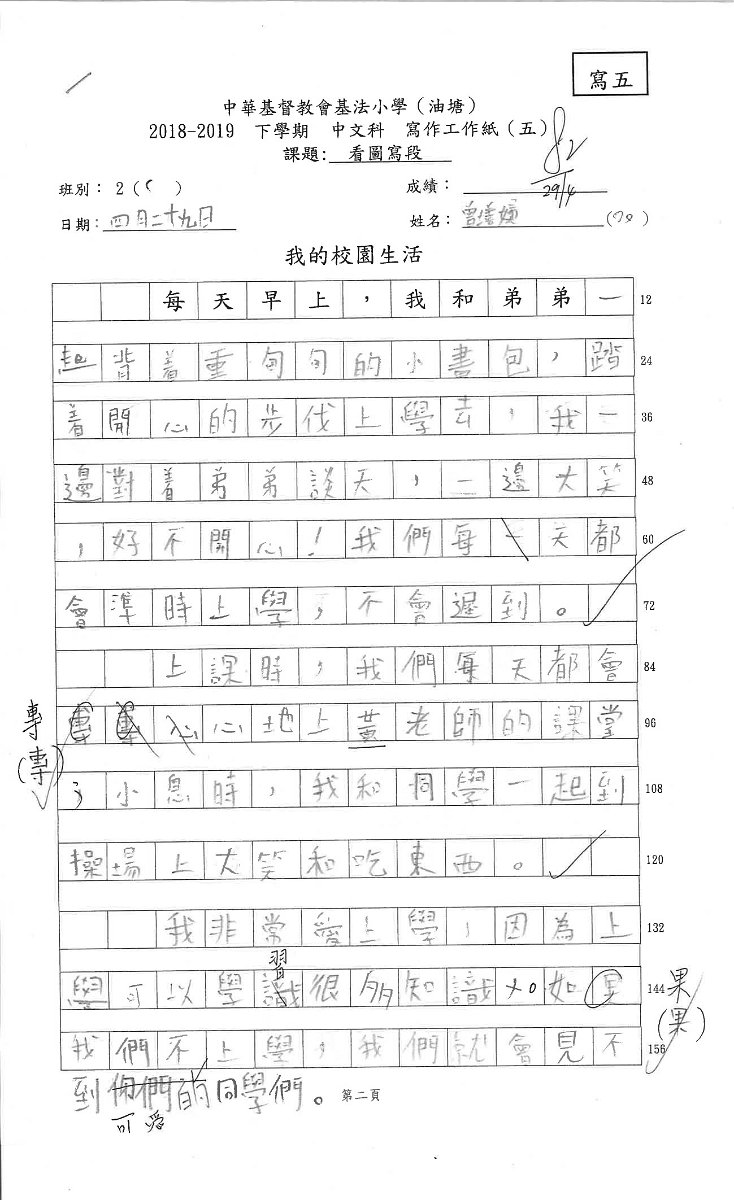 寫五
中華基督教會基法小學（油塘）
2018-2019 下學期 中文科 寫作工作紙（五）
課題: 看圖寫段
82
29/4
班別： 2 ( ) 成績：
日期: 四月二十九日 姓名： 曾
我的校園生活
每天早上，我和弟弟一 12
起背着重甸甸的小書包，踏 24
着開心的步伐上學去，我一 36
邊對着弟弟談天，一邊大笑 48
，好不開心！我們每一天都 60
會準時上學，不會遲到。 72
上課時，我們每天都會 84
專 心心地上黃老師的課堂 96
(專)
；小息時，我和同學一起到 108
操場上大笑和吃東西。 120
我非常愛上學，因為上 132
習
學可以學識很多知識，如如 144 果
(果)
我們不上學，我們就會見不 156
到你們的同學們。 第二頁
可愛